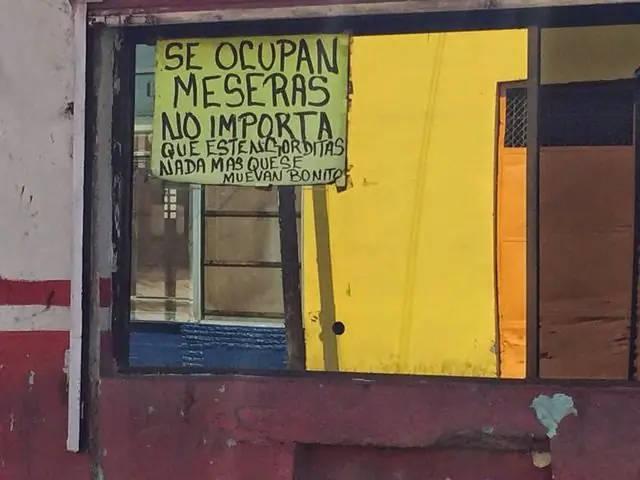 SE OCUPAN
MESERAS
NO IMPORTA
QUE ESTEN GORDITAS
NADA MAS QUE SE
MUEVAN BONITO